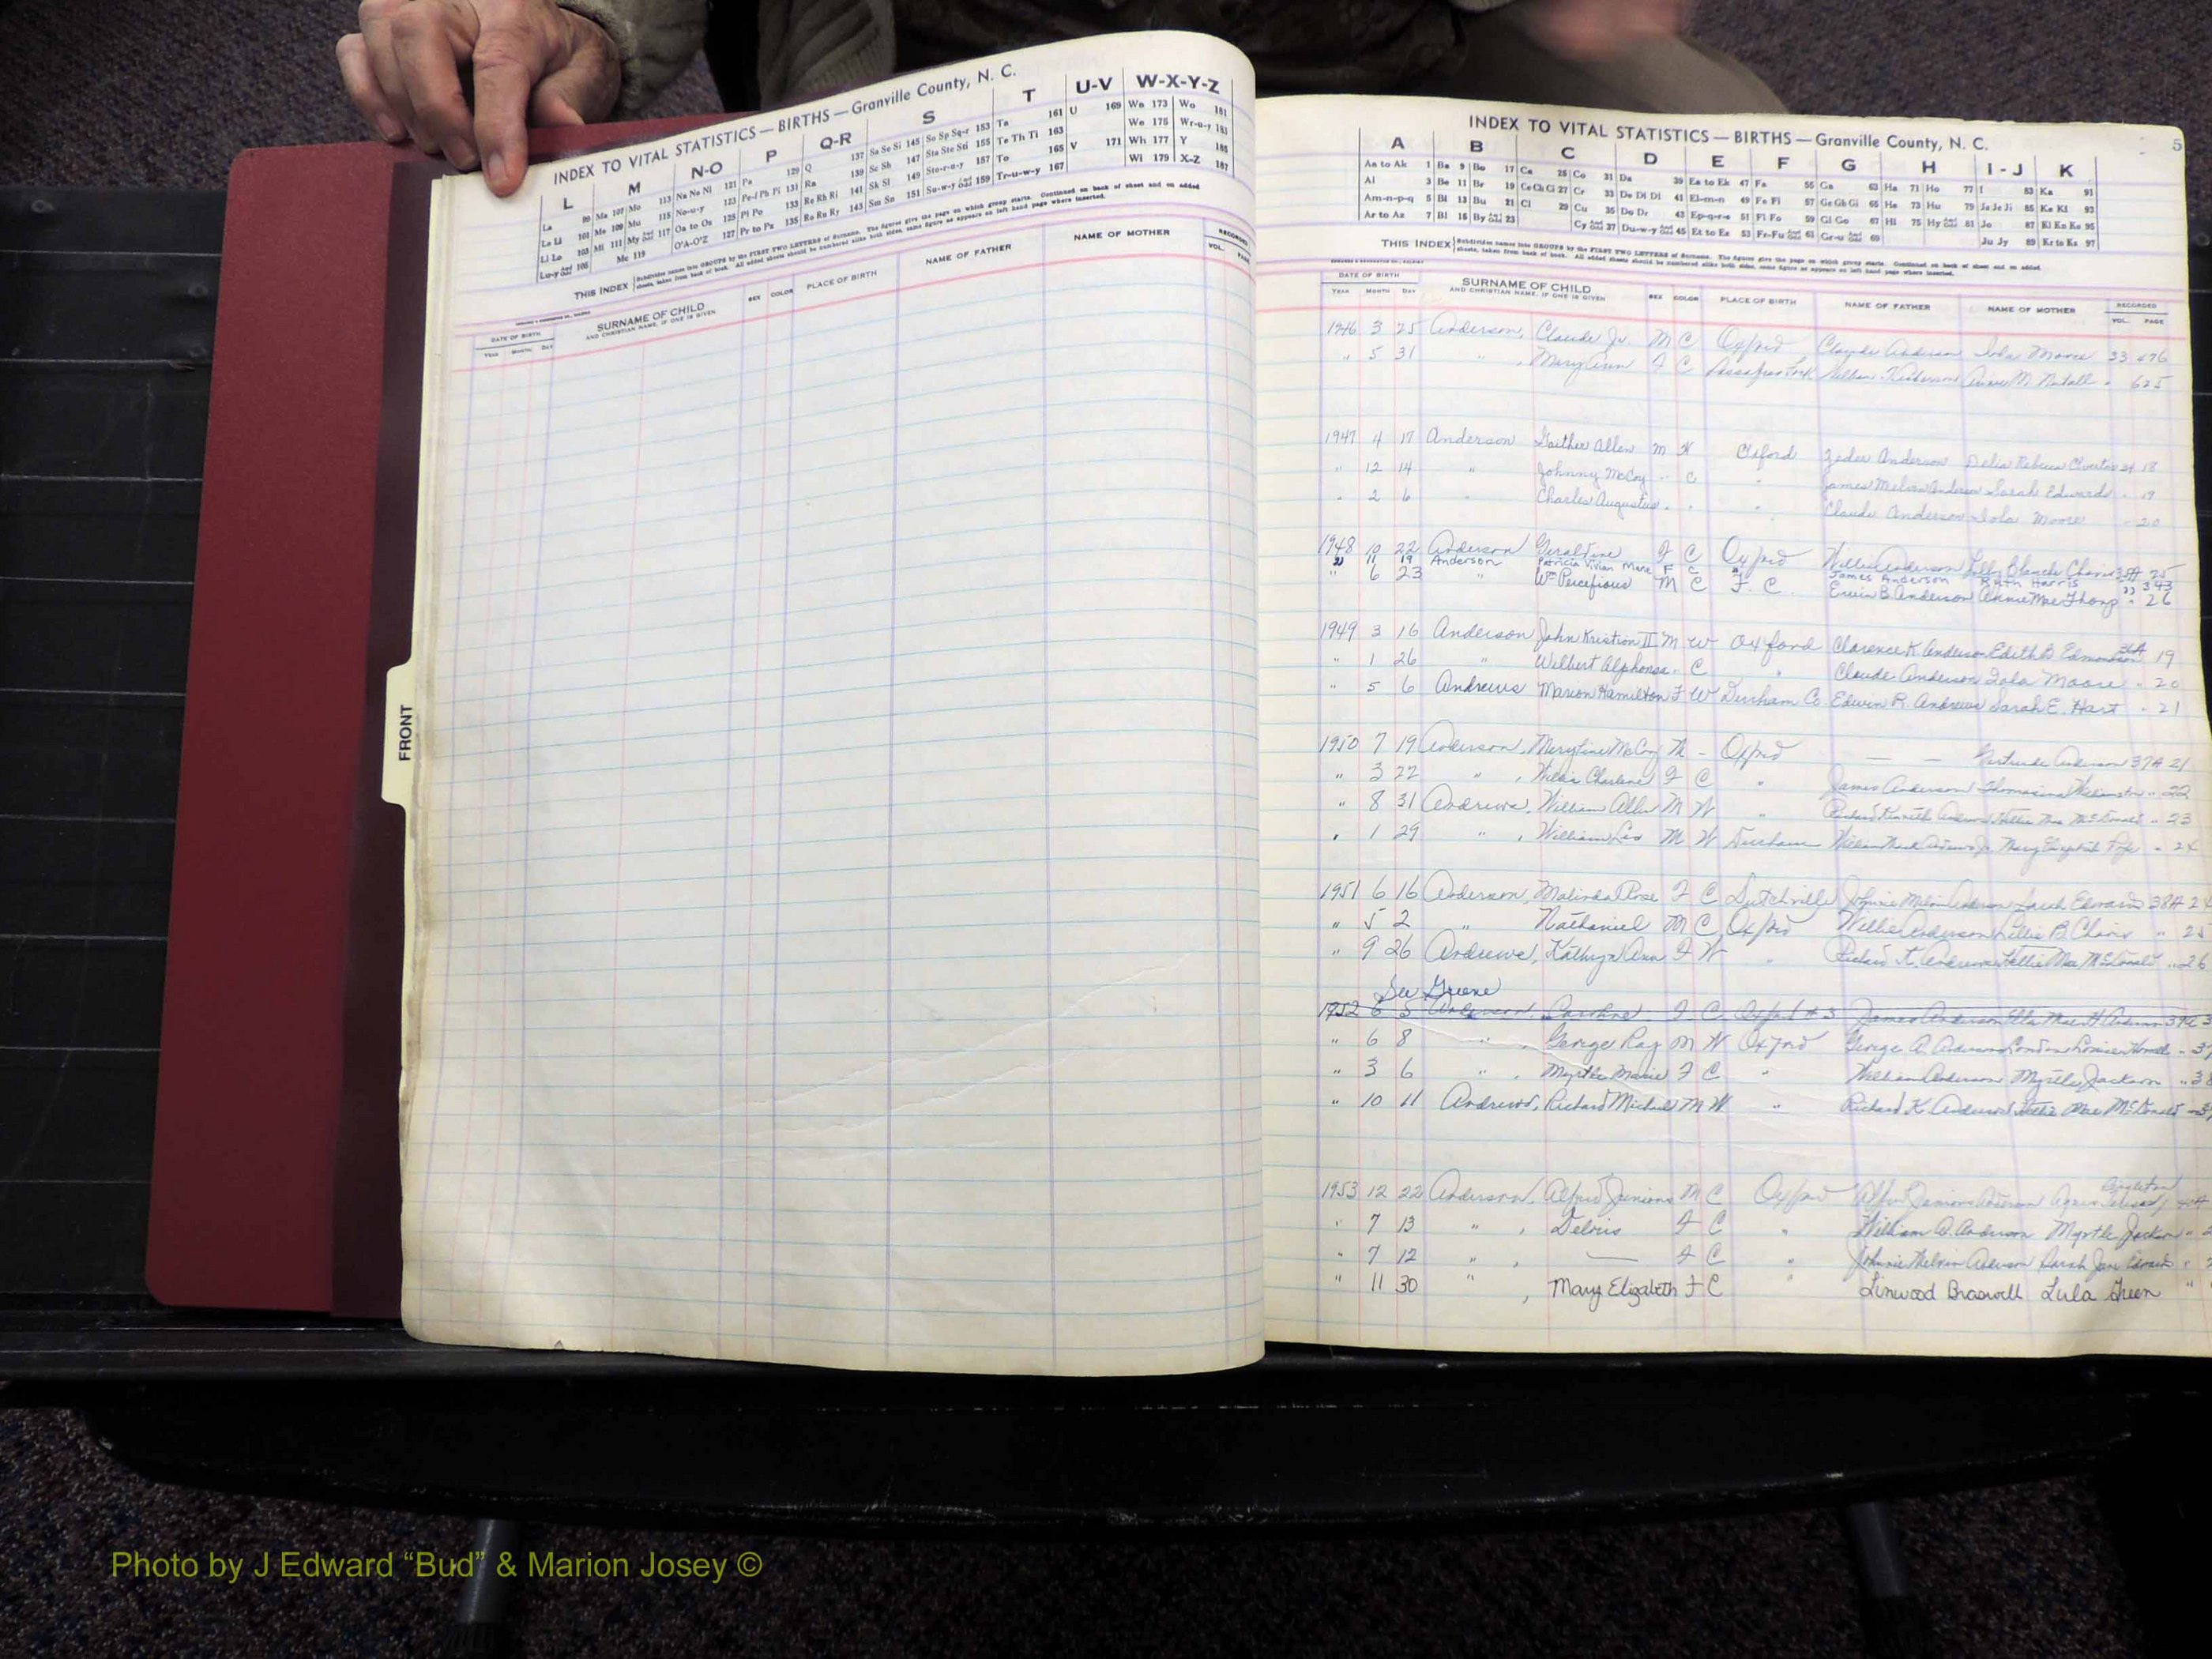 INDEX TO VITAL STATISTICS — BIRTHS — Granville County, N. C.
L M N-O P Q-R S T U-V W-X-Y-Z
La 99 Ma 107 Mo 113 Na Ne Ni 121 Pa 129 Q 137 Sa Se Si 145 So Sp Sq-r 153 Ta 161 U 169 Wa 173 Wo 181
Le Li 101 Me 109 Mu 115 No-u-y 123 Pe-f Ph Pi 131 Ra 139 Sc Sh 147 Sta Ste Sti 155 Te Th Ti 163 We 175 Wr-u-y 183
Ll Lo 103 Mi 111 My And Odd 117 Oa to Os 125 Pl Po 133 Re Rh Ri 141 Sk Sl 149 Sto-r-u-y 157 To 165 V 171 Wh 177 Y 185
Lu-y And Odd 105 Mc 119 O'A-O'Z 127 Pr to Pz 135 Ro Ru Ry 143 Sm Sn 151 Su-w-y And Odd 159 Tr-u-w-y 167 Wi 179 X-Z 187
THIS INDEX Subdivides names into GROUPS by the FIRST TWO LETTERS of Surname. The figures give the page on which group starts. Continued on back of sheet and on added
sheets, taken from back of book. All added sheets should be numbered alike both sides, same figure as appears on left hand page where inserted.
DATE OF BIRTH SURNAME OF CHILD SEX COLOR PLACE OF BIRTH NAME OF FATHER NAME OF MOTHER RECORDED
YEAR MONTH DAY AND CHRISTIAN NAME, IF ONE IS GIVEN VOL. PAGE
FRONT
INDEX TO VITAL STATISTICS — BIRTHS — Granville County, N. C.
5
A B C D E F G H I - J K
Aa to Ak 1 Ba 9 Bo 17 Ca 25 Co 31 Da 39 Ea to Ek 47 Fa 55 Ga 63 Ha 71 Ho 77 I 83 Ka 91
Al 3 Be 11 Br 19 Ce Ch Ci 27 Cr 33 De Di Dl 41 El-m-n 49 Fe Fi 57 Ge Gh Gi 65 He 73 Hu 79 Ja Je Ji 85 Ke Kl 93
Am-n-p-q 5 Bl 13 Bu 21 Cl 29 Cu 35 Do Dr 43 Ep-q-r-s 51 Fl Fo 59 Gl Go 67 Hi 75 Hy And Odd 81 Jo 87 Kl Kn Ko 95
Ar to Az 7 Bl 15 By And Odd 23 Cy And Odd 37 Du-w-y And Odd 45 Et to Ez 53 Fr-Fu And Odd 61 Gr-u And Odd 69 Ju Jy 89 Kr to Kz 97
THIS INDEX Subdivides names into GROUPS by the FIRST TWO LETTERS of Surname. The figures give the page on which group starts. Continued on back of sheet and on added
sheets, taken from back of book. All added sheets should be numbered alike both sides, same figure as appears on left hand page where inserted.
DATE OF BIRTH SURNAME OF CHILD SEX COLOR PLACE OF BIRTH NAME OF FATHER NAME OF MOTHER RECORDED
YEAR MONTH DAY AND CHRISTIAN NAME, IF ONE IS GIVEN VOL. PAGE
1946 3 25 Anderson, Claude Jr. M C Oxford Claude Anderson Iola Moore 33 476
" 5 31 " , Mary Ann F C Sassafras Fork William Anderson 625
1947 4 17 Anderson Gaither Allen M W Oxford Anderson Delia Rebecca 34 18
" 12 14 " Johnny McCoy " C " James Melvin Anderson Sarah Edwards " 19
" 2 6 " Charles Augustus " " " Claude Anderson Iola Moore " 20
1948 10 22 Anderson Geraldine F C Oxford Willie Anderson Blanche 35A 25
" 11 19 Anderson Patricia Vivian Marie F C " James Anderson Ruth Harris " 343
" 6 23 " Wm Percefious M C F. C. Erwin B. Anderson Annie Mae Thorp " 26
1949 3 16 Anderson John Kristion II M W Oxford Clarence K. Anderson Edith B. Edmondson 36A 19
" 1 26 " Wilbert Alphonsa " C " Claude Anderson Iola Moore " 20
" 5 6 Andrews Marion Hamilton F W Durham Co. Edwin R. Andrews Sarah E. Hart " 21
1950 7 19 Anderson, McCoy M - Oxford — — Gertrude Anderson 37A 21
" 3 22 " , Willie Charlene F C " James Anderson Thomasina " 22
" 8 31 Andrews, William Allen M W " Richard Kenneth Andrews Hallie Mae McDonald " 23
" 1 29 " , William Leo M W Durham William Andrews Jr. Mary Elizabeth " 24
1951 6 16 Anderson, Malinda Rose F C Dutchville Johnnie Melvin Anderson Sarah Edwards 38A 24
" 5 2 " Nathaniel M C Oxford Willie Anderson Lillie B. Chavis " 25
" 9 26 Andrews, Kathryn Ann F W " Richard K. Andrews Hallie Mae McDonald " 26
See Greene
1952 6 5 Anderson, Caroline F C Oxford #3 James Anderson Ella Mae H.
" 6 8 " , George Ray M W Oxford George A. Anderson
" 3 6 " , Myrtle Marie F C " William Anderson Myrtle Jackson
" 10 11 Andrews, Richard Michael M W " Richard K. Andrews Hallie Mae McDonald
1953 12 22 Anderson, Alfred Juniors M C Oxford Alfred Juniors Anderson
" 7 13 " , Deloris F C " William A. Anderson Myrtle Jackson "
" 7 12 " , — F C " Johnnie Melvin Anderson Sarah Jane Edwards "
" 11 30 " , Mary Elizabeth F C " Linwood Braswell Lula Green "
Photo by J Edward “Bud” & Marion Josey ©